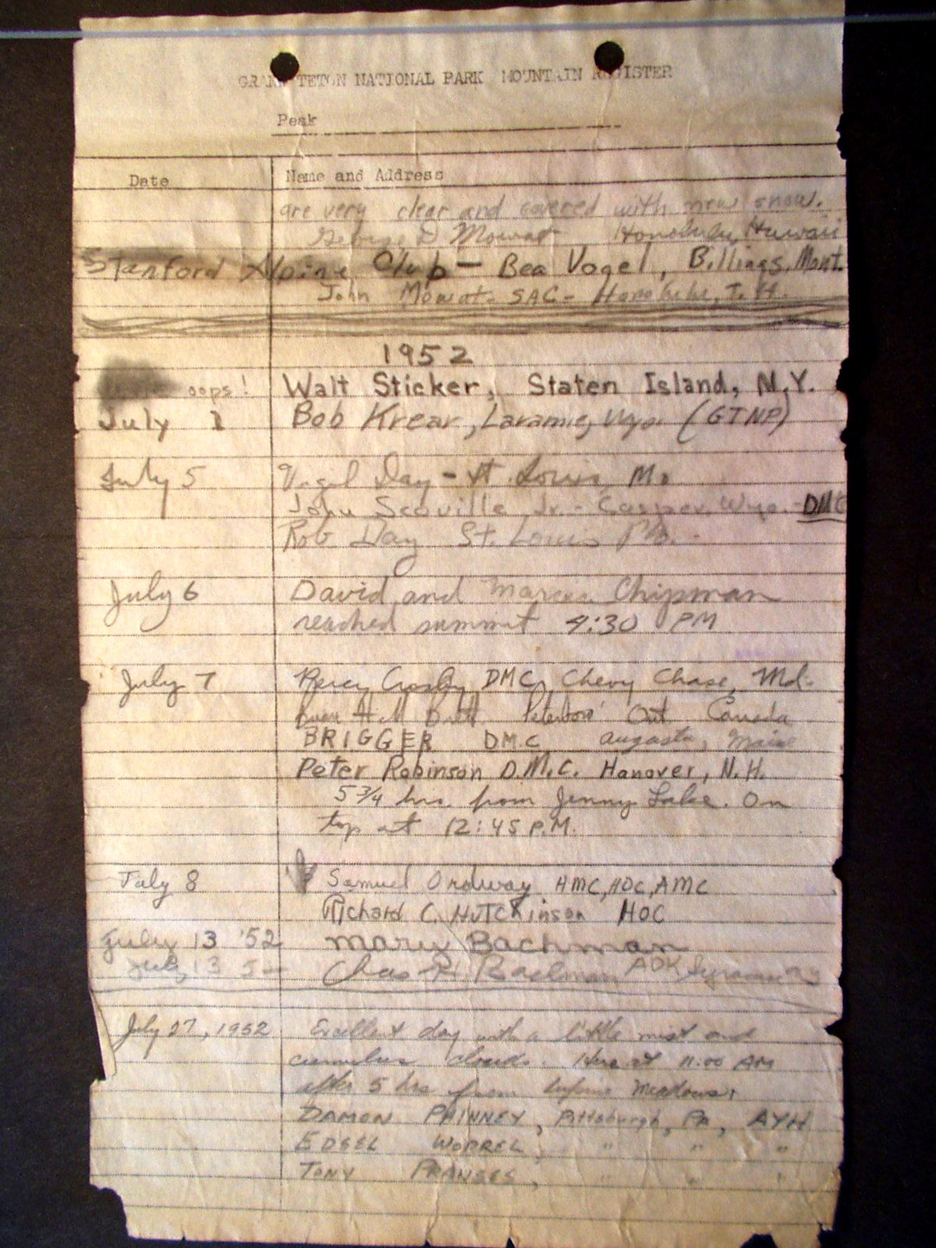 GRAND TETON NATIONAL PARK MOUNTAIN REGISTER
Peak
Date Name and Address
are very clear and covered with new snow.
George D Mowat Honolulu, Hawaii
Stanford Alpine Club - Bea Vogel, Billings, Mont.
John Mowat - SAC - Honolulu, T. H.
1952
oops! Walt Sticker, Staten Island, N.Y.
July 1 Bob Krear, Laramie, Wyo. (GTNP)
July 5 Virgil Day - St Louis, Mo
John Scoville Jr. - Casper, Wyo. - DMC
Rob Day St. Louis Mo.
July 6 David and Marcia Chipman
reached summit 4:30 PM
July 7 Percy Crosby DMC, Chevy Chase, Md.
Peterboro' Ont. Canada
BRIGGER DMC Augusta, Maine
Peter Robinson D.M.C. Hanover, N.H.
5 3/4 hrs. from Jenny Lake. On
top at 12:45 P.M.
July 8 Samuel Ordway HMC, HOC, AMC
Richard C. Hutchinson HOC
July 13 '52 Mary Bachman
July 13 52 Chas H. Bachman ADK Syracuse
July 27, 1952 Excellent day with a little mist and
cumulus clouds. Here at 11:00 AM
after 5 hrs from Meadows:
DAMON PHINNEY, Pittsburgh, Pa, AYH
EDSEL WORREL, " " "
TONY FRANSES, " " "